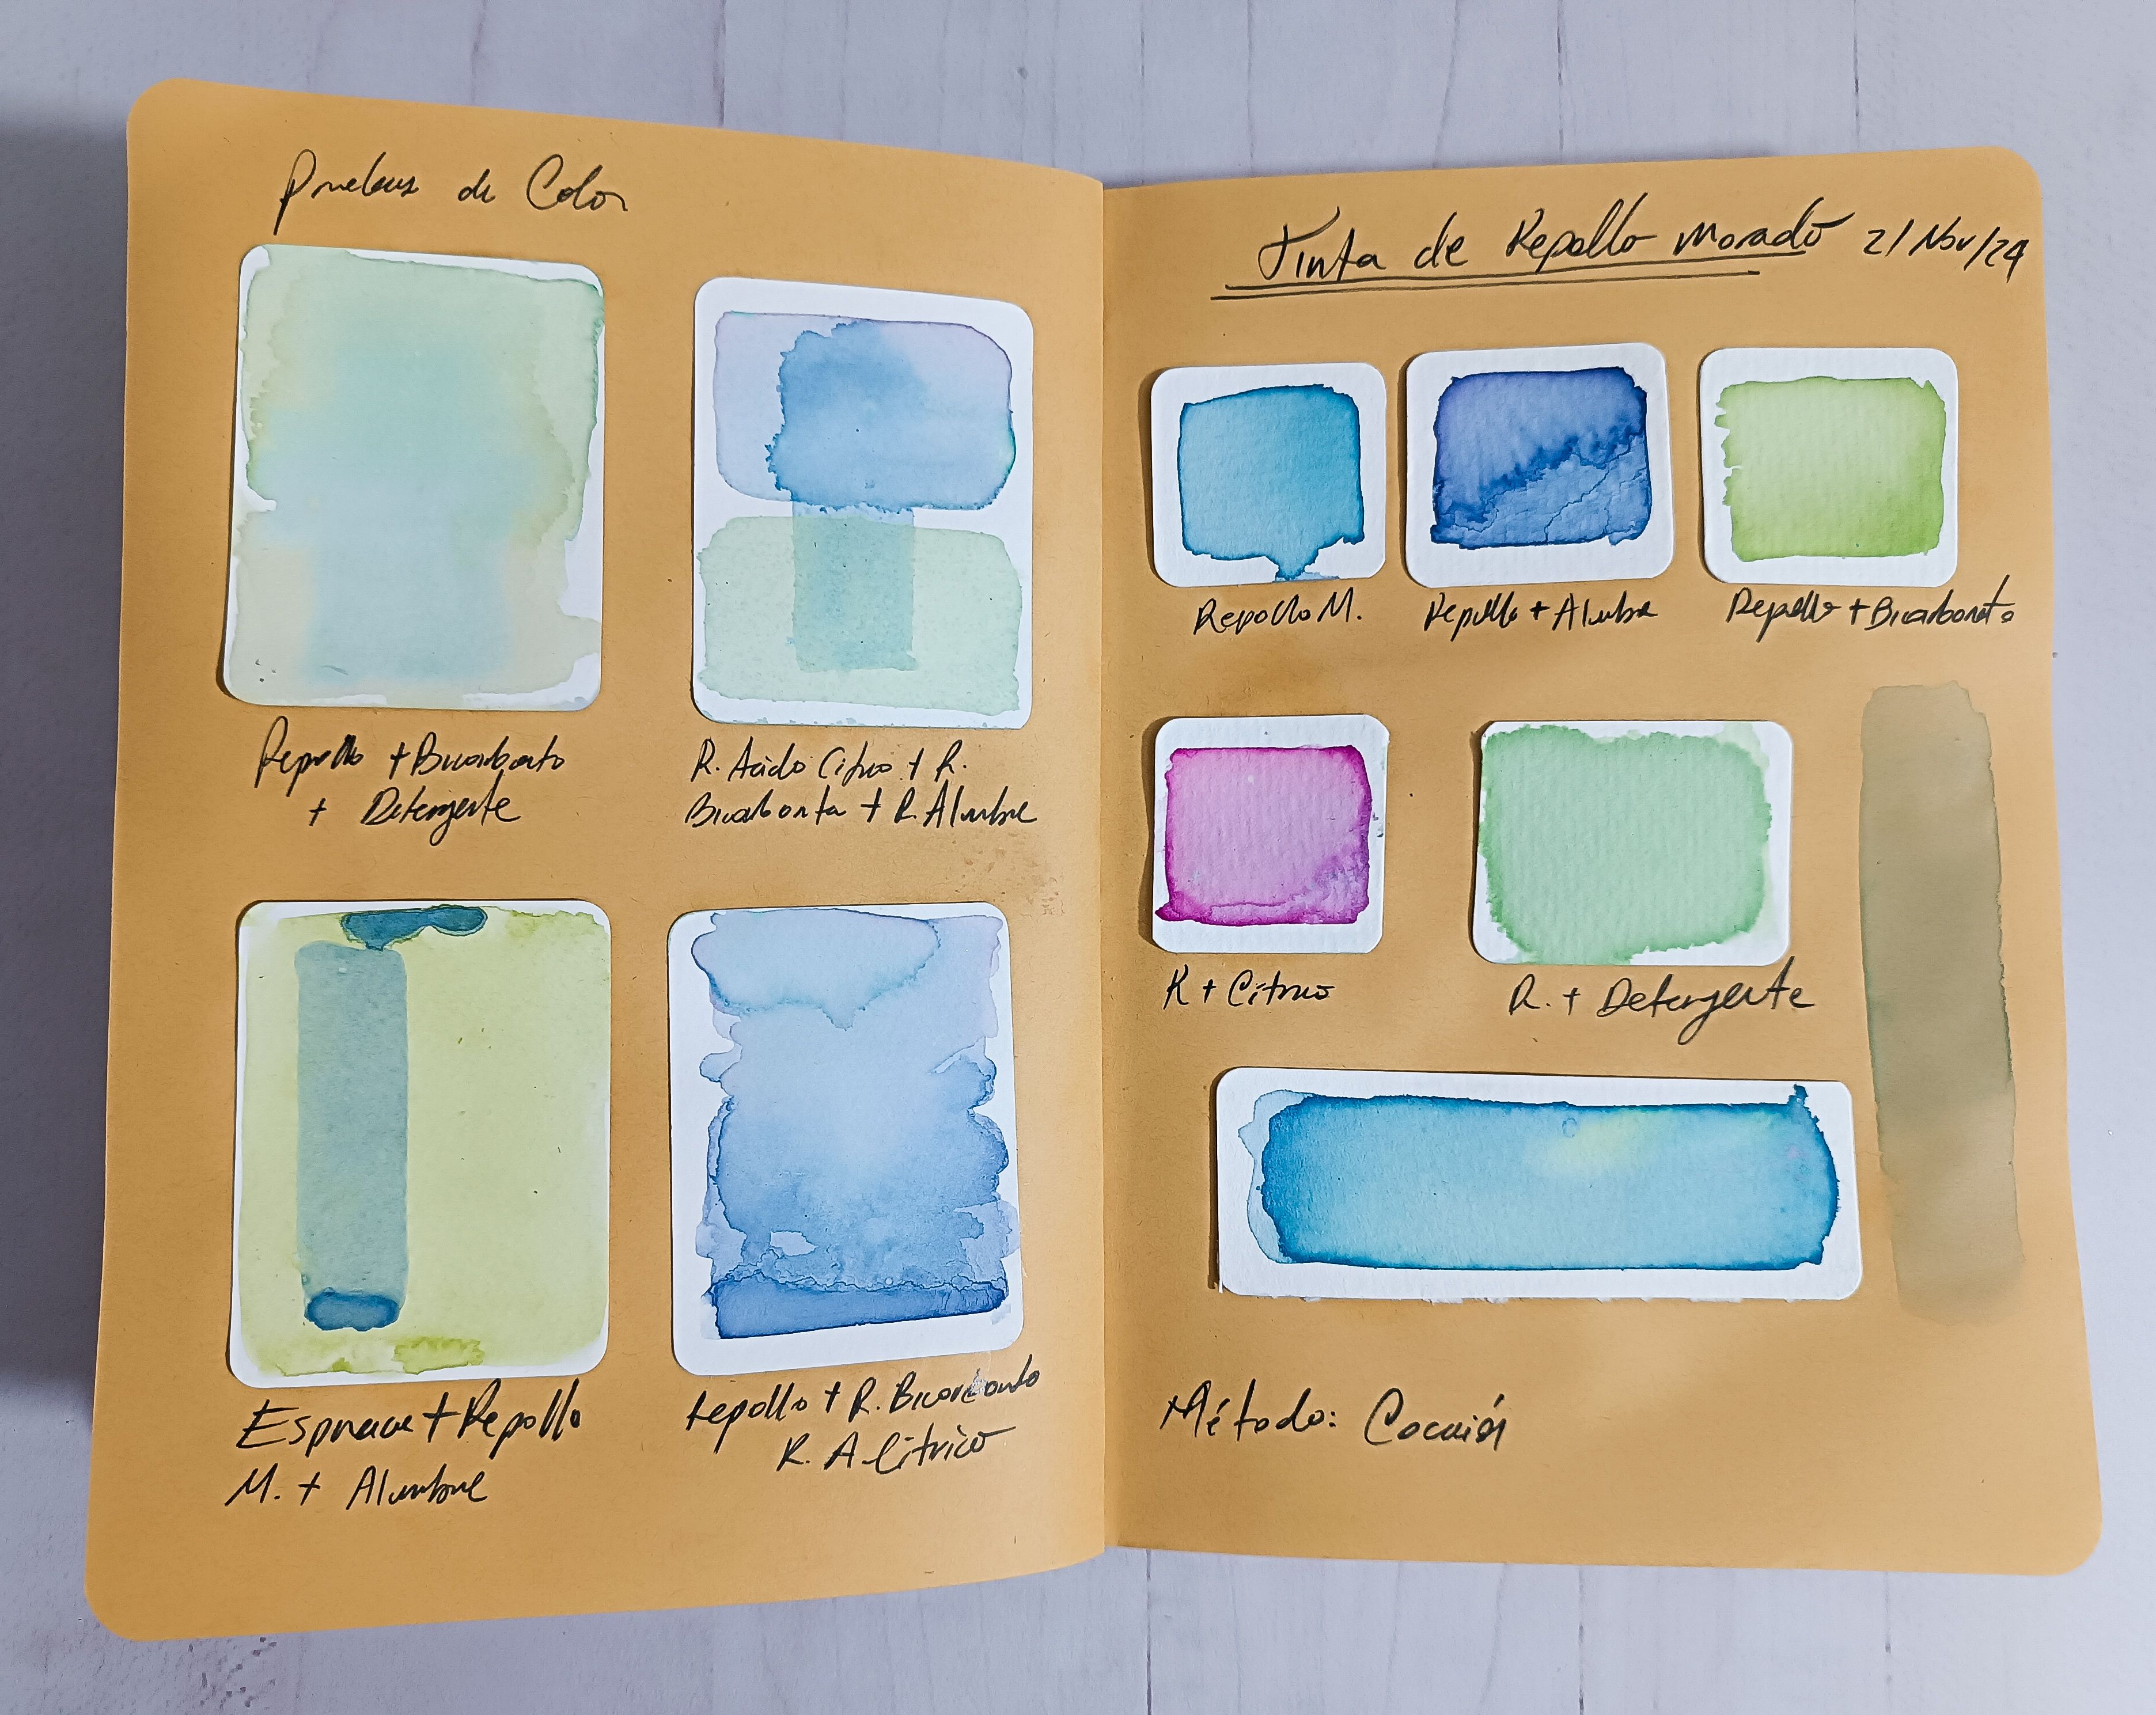 Pruebas de Color
Repollo + Bicarbonato
+ Detergente
R. Acido Citrico + R.
Bicarbonato + R. Alumbre
Espinaca + Repollo
M. + Alumbre
Repollo + R. Bicarbonato
R. A. Citrico
Tinta de Repollo Morado 21/Nov/24
Repollo M.
Repollo + Alumbre
Repollo + Bicarbonato
R + Citrico
R. + Detergente
Método: Cocción